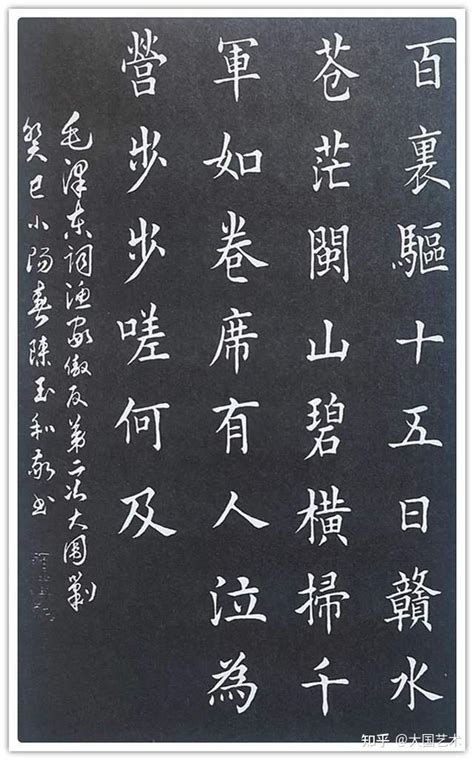 百裏驅十五日贛水
苍茫閩山碧橫掃千
軍如卷席有人泣為
營步步嗟何及
毛澤东词渔家傲反第二次大围剿
癸巳小陽春陳玉和敬书
知乎 @大国艺术